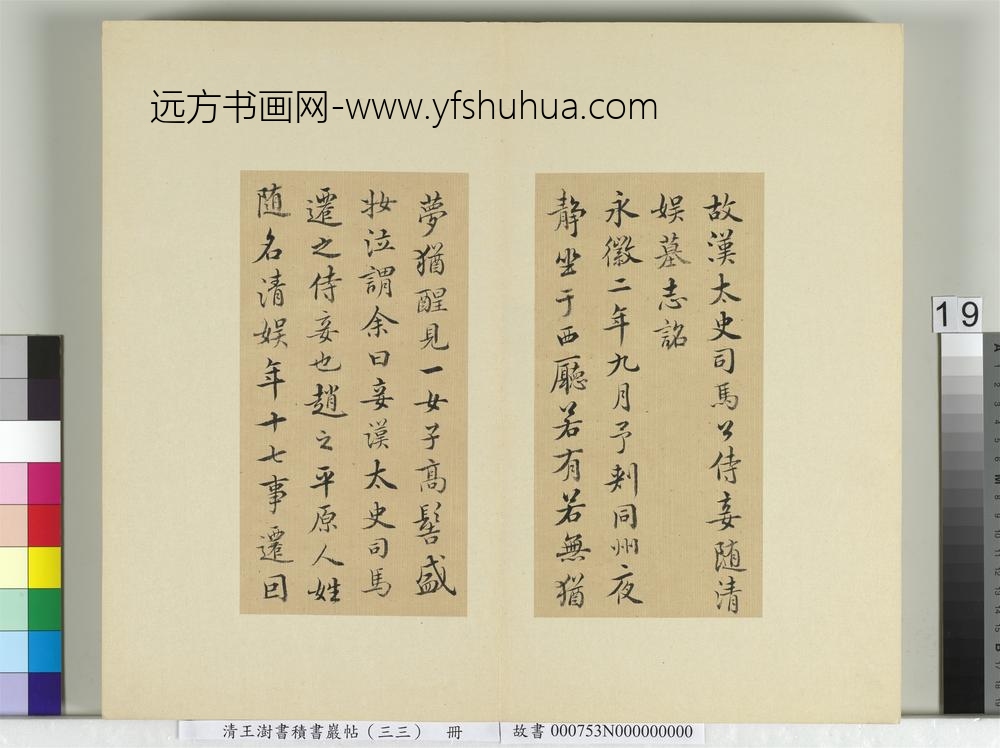 远方书画网-www.yfshuhua.com
故漢太史司馬公侍妾随清
娱墓志銘
永徽二年九月予刺同州夜
静坐于西廳若有若無猶
夢猶醒見一女子髙髻盛
妆泣謂余曰妾漢太史司馬
遷之侍妾也趙之平原人姓
随名清娱年十七事遷因
19
清王澍書積書巖帖（三三） 冊
故書 000753N000000000